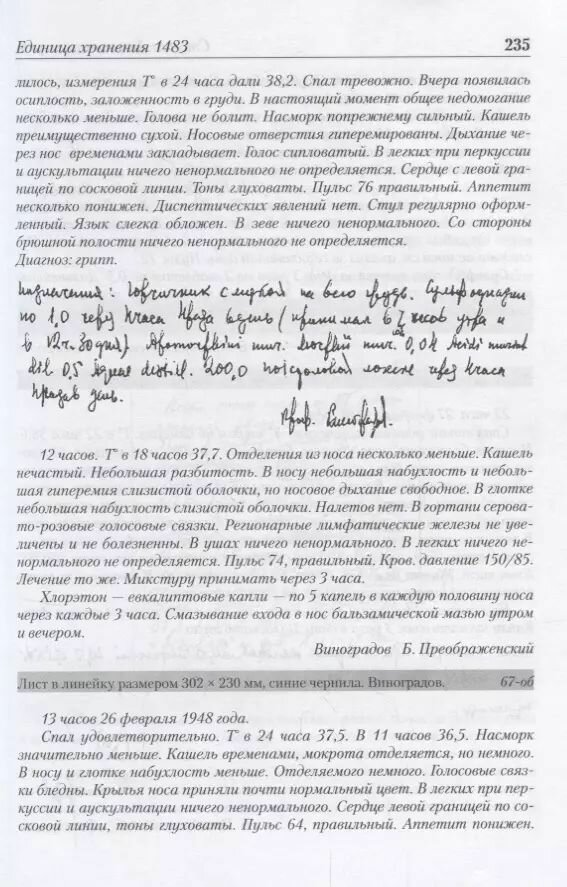 Единица хранения 1483 235
лилось, измерения Т° в 24 часа дали 38,2. Спал тревожно. Вчера появилась
осиплость, заложенность в груди. В настоящий момент общее недомогание
несколько меньше. Голова не болит. Насморк попрежнему сильный. Кашель
преимущественно сухой. Носовые отверстия гиперемированы. Дыхание че-
рез нос временами закладывает. Голос сипловатый. В легких при перкуссии
и аускультации ничего ненормального не определяется. Сердце с левой гра-
ницей по сосковой линии. Тоны глуховаты. Пульс 76 правильный. Аппетит
несколько понижен. Диспептических явлений нет. Стул регулярно оформ-
ленный. Язык слегка обложен. В зеве ничего ненормального. Со стороны
брюшной полости ничего ненормального не определяется.
Диагноз: грипп.
Назначения: Горчичник с на всю грудь. Сульфодиазин
по 1,0 через 4 часа 4 раза в день (принимал в 7 часов утра и
в дня) Apomorphini mur. Morphii mur. 0,04 Acidi muriat
dil 0,5 Aquae destill. 200,0 по столовой ложке через 4 часа
день.
Проф. Виноградов.
12 часов. Т° в 18 часов 37,7. Отделения из носа несколько меньше. Кашель
нечастый. Небольшая разбитость. В носу небольшая набухлость и неболь-
шая гиперемия слизистой оболочки, но носовое дыхание свободное. В глотке
небольшая набухлость слизистой оболочки. Налетов нет. В гортани серова-
то-розовые голосовые связки. Регионарные лимфатические железы не уве-
личены и не болезненны. В ушах ничего ненормального. В легких ничего не-
нормального не определяется. Пульс 74, правильный. Кров. давление 150/85.
Лечение то же. Микстуру принимать через 3 часа.
Хлорэтон — евкалиптовые капли — по 5 капель в каждую половину носа
через каждые 3 часа. Смазывание входа в нос бальзамической мазью утром
и вечером.
Виноградов Б. Преображенский
Лист в линейку размером 302 × 230 мм, синие чернила. Виноградов. 67-об
13 часов 26 февраля 1948 года.
Спал удовлетворительно. Т° в 24 часа 37,5. В 11 часов 36,5. Насморк
значительно меньше. Кашель временами, мокрота отделяется, но немного.
В носу и глотке набухлость меньше. Отделяемого немного. Голосовые связ-
ки бледны. Крылья носа приняли почти нормальный цвет. В легких при пер-
куссии и аускультации ничего ненормального. Сердце левой границей по со-
сковой линии, тоны глуховаты. Пульс 64, правильный. Аппетит понижен.